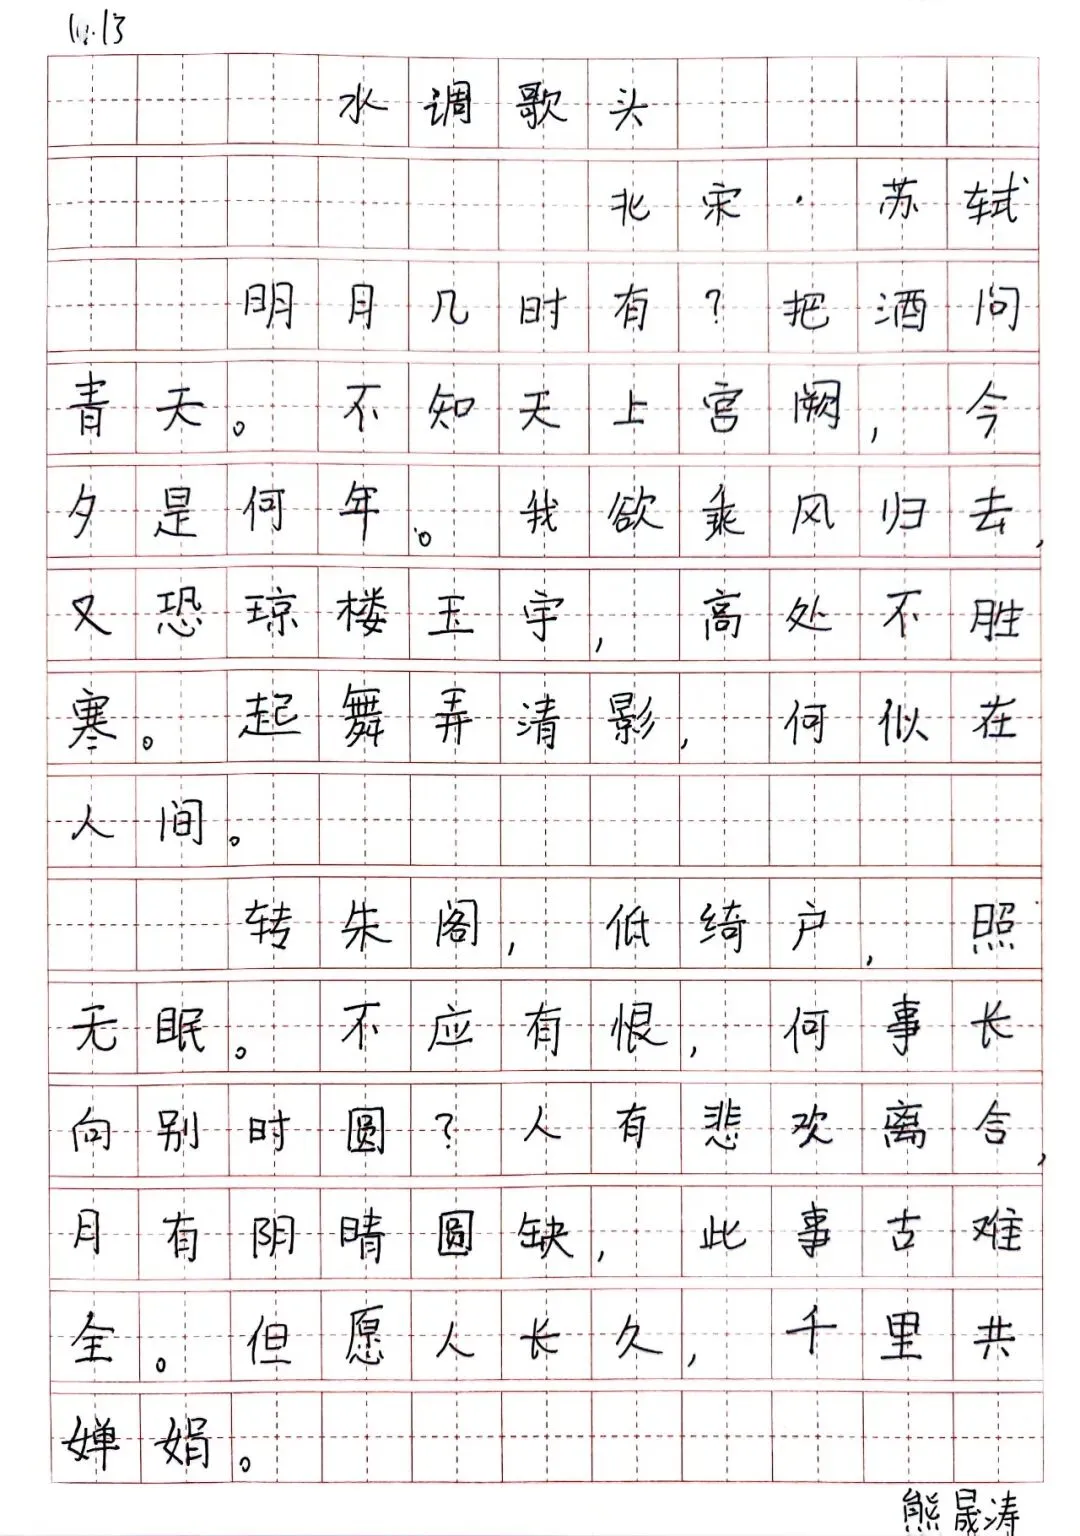 10.13
水调歌头
北宋·苏轼
明月几时有？把酒问
青天。不知天上宫阙，今
夕是何年。我欲乘风归去，
又恐琼楼玉宇，高处不胜
寒。起舞弄清影，何似在
人间。
转朱阁，低绮户，照
无眠。不应有恨，何事长
向别时圆？人有悲欢离合，
月有阴晴圆缺，此事古难
全。但愿人长久，千里共
婵娟。
熊晟涛